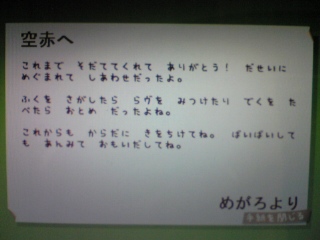 空赤へ
これまで そだててくれて ありがとう! だせいに
めぐまれて しあわせだったよ。
ふくを さがしたら らヴを みつけたり でくを た
べたら おとめ だったよね。
これからも からだに きをちけてね。 ばいばいして
も あんみて おもいだしてね。
めがろより
手紙を閉じる